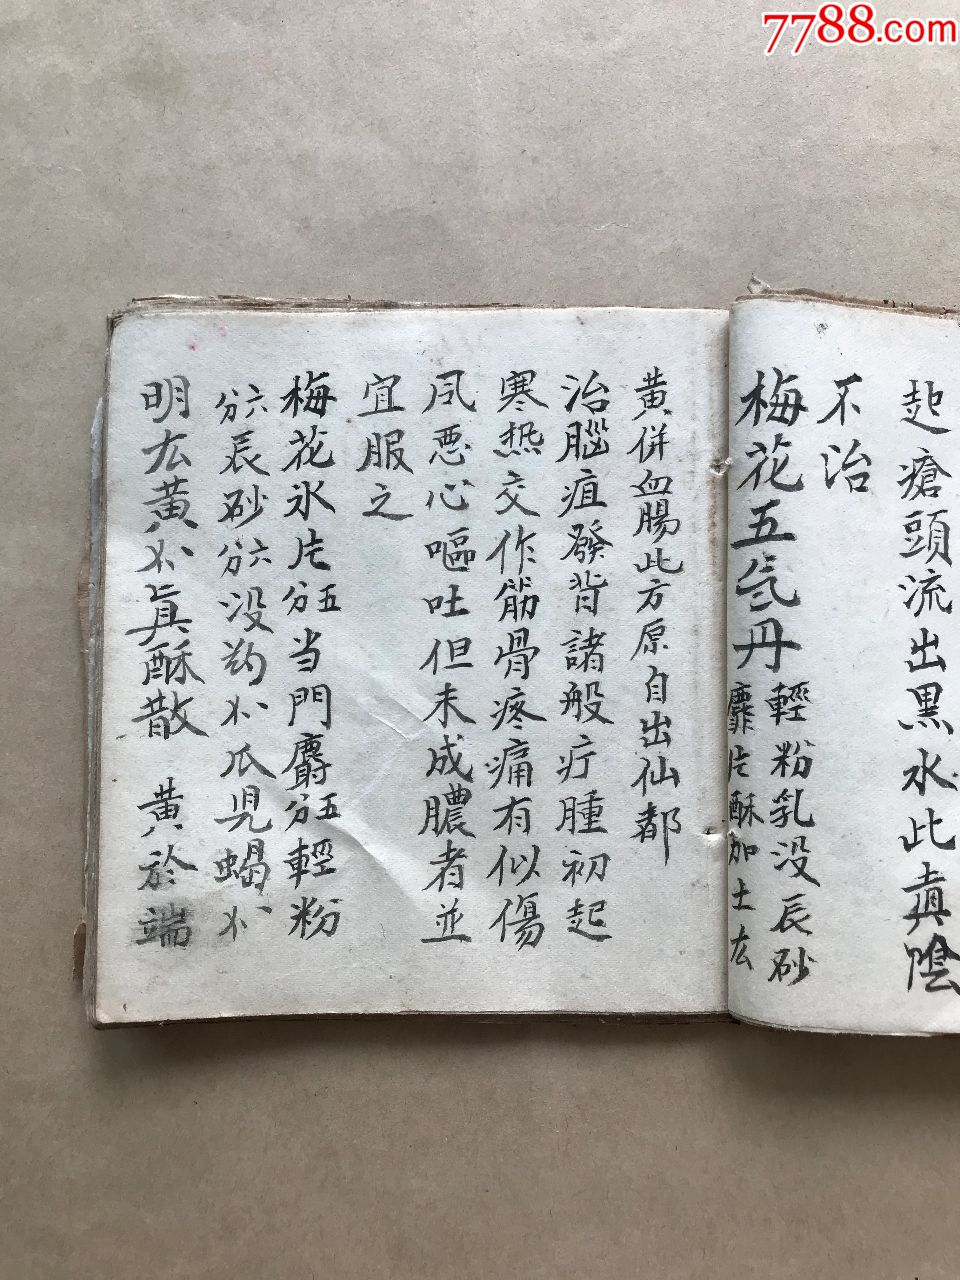 起瘡頭流出黒水此真陰
不治
梅花五炁丹
輕粉乳没辰砂
麝片酥加土㕕
黄併血腸此方原自出仙都
治腦疽發背諸般疔腫初起
寒热交作筋骨疼痛有似傷
风恶心嘔吐但未成膿者並
宜服之
梅花氷片五分当門麝五分輕粉
六分辰砂六分没药
瓜児蝎
明 黄 真酥散 黄於端
7788.com